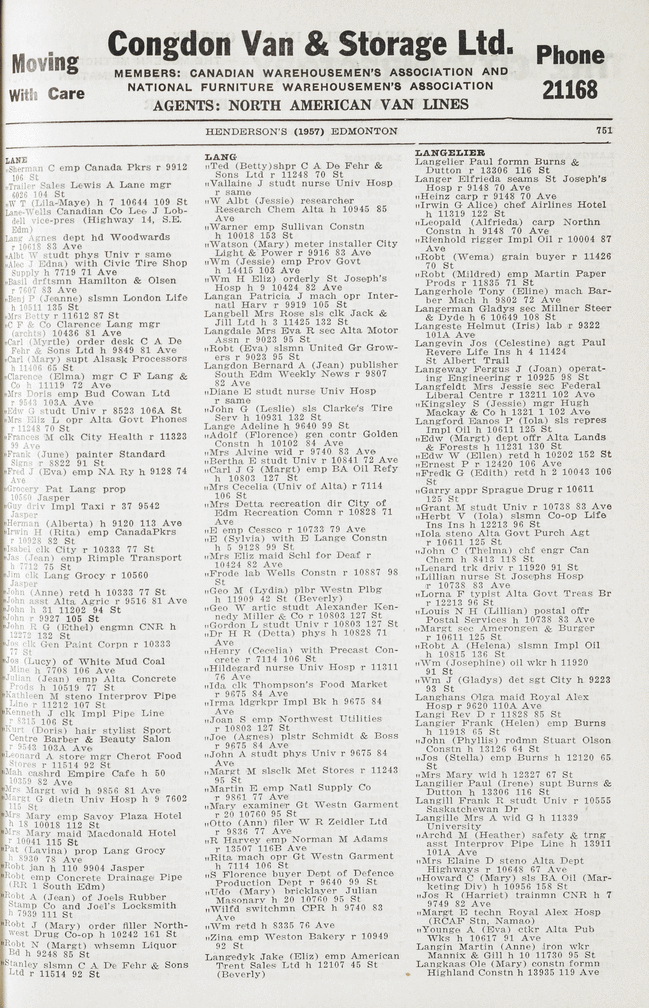 Moving
With Care
Congdon Van & Storage Ltd.
MEMBERS: CANADIAN WAREHOUSEMEN'S ASSOCIATION AND
NATIONAL FURNITURE WAREHOUSEMEN'S ASSOCIATION
AGENTS: NORTH AMERICAN VAN LINES
Phone
21168
HENDERSON'S (1957) EDMONTON
751
LANE
„Sherman C emp Canada Pkrs r 9912
106 St
„Trailer Sales Lewis A Lane mgr
6026 104 St
„W T (Lila-Maye) h 7 10644 109 St
Lane-Wells Canadian Co Lee J Lob-
dell vice-pres (Highway 14, S.E.
Edm)
Lang Agnes dept hd Woodwards
r 10618 83 Ave
„Albt W studt phys Univ r same
„Alec J Edna) with Civic Tire Shop
Supply h 7719 71 Ave
„Basil drftsmn Hamilton & Olsen
r 7607 83 Ave
„Benj P (Jeanne) slsmn London Life
h 10511 135 St
„Mrs Betty r 11612 87 St
„C F & Co Clarence Lang mgr
(archts) 10436 81 Ave
„Carl (Myrtle) order desk C A De
Fehr & Sons Ltd h 9849 81 Ave
„Carl (Mary) supt Alsask Processors
h 11406 65 St
„Clarence (Elma) mgr C F Lang &
Co h 11119 72 Ave
„Mrs Doris emp Bud Cowan Ltd
r 9543 103A Ave
„Edw G studt Univ r 8523 106A St
„Mrs Eliz L opr Alta Govt Phones
r 11248 70 St
„Frances M clk City Health r 11323
99 Ave
„Frank (June) painter Standard
Signs r 8822 91 St
„Fred J (Eva) emp NA Ry h 9128 74
Ave
„Grocery Pat Lang prop
10560 Jasper
„Guy driv Impl Taxi r 37 9542
Jasper
„Herman (Alberta) h 9120 113 Ave
„Irwin H (Rita) emp CanadaPkrs
r 10928 82 St
„Isabel clk City r 10333 77 St
„Jas (Jean) emp Rimple Transport
h 7712 75 St
„Jim clk Lang Grocy r 10560
Jasper
„John (Anne) retd h 10333 77 St
„John asst Alta Agric r 9516 81 Ave
„John h 31 11202 94 St
„John r 9927 105 St
„John R G (Ethel) engmn CNR h
12272 132 St
„Jos clk Gen Paint Corpn r 10333
77 St
„Jos (Lucy) of White Mud Coal
Mine h 7708 106 Ave
„Julian (Jean) emp Alta Concrete
Prods h 10519 77 St
„Kathleen M steno Interprov Pipe
Line r 11212 107 St
„Kenneth J clk Impl Pipe Line
r 8315 106 St
„Kurt (Doris) hair stylist Sport
Centre Barber & Beauty Salon
r 9543 103A Ave
„Leonard A store mgr Cherot Food
Stores r 11514 92 St
„Mah cashrd Empire Cafe h 50
10359 82 Ave
„Mrs Margt wid h 9856 81 Ave
„Margt G dietn Univ Hosp h 9 7602
115 St
„Mrs Mary emp Savoy Plaza Hotel
h 18 10018 112 St
„Mrs Mary maid Macdonald Hotel
r 10041 115 St
„Pat (Lavina) prop Lang Grocy
h 8930 78 Ave
„Robt jan h 110 9904 Jasper
„Robt emp Concrete Drainage Pipe
(RR 1 South Edm)
„Robt A (Jean) of Joels Rubber
Stamp Co and Joel's Locksmith
h 7939 111 St
„Robt J (Mary) order filler North-
west Drug Co-op h 10242 161 St
„Robt N (Margt) whsemn Liquor
Bd h 9248 85 St
„Stanley slsmn C A De Fehr & Sons
Ltd r 11514 92 St
LANG
„Ted (Betty)shpr C A De Fehr &
Sons Ltd r 11248 70 St
„Vallaine J studt nurse Univ Hosp
r same
„W Albt (Jessie) researcher
Research Chem Alta h 10945 85
Ave
„Warner emp Sullivan Constn
h 10018 153 St
„Watson (Mary) meter installer City
Light & Power r 9916 83 Ave
„Wm (Jessie) emp Prov Govt
h 14415 103 Ave
„Wm H Eliz) orderly St Joseph's
Hosp h 9 10424 82 Ave
Langan Patricia J mach opr Inter-
natl Harv r 9919 105 St
Langbell Mrs Rose sls clk Jack &
Jill Ltd h 3 11425 132 St
Langdale Mrs Eva R sec Alta Motor
Assn r 9023 95 St
„Robt (Eva) slsmn United Gr Grow-
ers r 9023 95 St
Langdon Bernard A (Jean) publisher
South Edm Weekly News r 9807
82 Ave
„Diane E studt nurse Univ Hosp
r same
„John G (Leslie) sls Clarke's Tire
Serv h 10931 132 St
Lange Adeline h 9640 99 St
„Adolf (Florence) gen contr Golden
Constn h 10102 84 Ave
„Mrs Alvine wid r 9740 83 Ave
„Bertha E studt Univ r 10841 72 Ave
„Carl J G (Margt) emp BA Oil Refy
h 10803 127 St
„Mrs Cecelia (Univ of Alta) r 7114
106 St
„Mrs Detta recreation dir City of
Edm Recreation Comn r 10828 71
Ave
„E emp Cessco r 10733 79 Ave
„E (Sylvia) with E Lange Constn
h 5 9128 99 St
„Mrs Eliz maid Schl for Deaf r
10424 82 Ave
„Frode lab Wells Constn r 10887 98
St
„Geo M (Lydia) plbr Westn Plbg
h 11909 42 St (Beverly)
„Geo W artic studt Alexander Ken-
nedy Miller & Co r 10803 127 St
„Gordon L studt Univ r 10803 127 St
„Dr H R (Detta) phys h 10828 71
Ave
„Henry (Cecelia) with Precast Con-
crete r 7114 106 St
„Hildegard nurse Univ Hosp r 11311
76 Ave
„Ida clk Thompson's Food Market
r 9675 84 Ave
„Irma ldgrkpr Impl Bk h 9675 84
Ave
„Joan S emp Northwest Utilities
r 10803 127 St
„Joe (Agnes) plstr Schmidt & Boss
r 9675 84 Ave
„John A studt phys Univ r 9675 84
Ave
„Margt M slsclk Met Stores r 11243
95 St
„Martin E emp Natl Supply Co
r 9861 77 Ave
„Mary examiner Gt Westn Garment
r 20 10760 95 St
„Otto (Ann) filer W R Zeidler Ltd
r 9836 77 Ave
„R Harvey emp Norman M Adams
r 13507 116B Ave
„Rita mach opr Gt Westn Garment
h 7114 106 St
„S Florence buyer Dept of Defence
Production Dept r 9640 99 St
„Udo (Mary) bricklayer Julian
Masonary h 20 10760 95 St
„Wilfd switchmn CPR h 9740 83
Ave
„Wm retd h 8335 76 Ave
„Zina emp Weston Bakery r 10949
92 St
Langedyk Jake (Eliz) emp American
Trent Sales Ltd h 12107 45 St
(Beverly)
LANGELIER
Langelier Paul formn Burns &
Dutton r 13306 116 St
Langer Elfrieda seams St Joseph's
Hosp r 9148 70 Ave
„Heinz carp r 9148 70 Ave
„Irwin G Alice) chef Airlines Hotel
h 11319 122 St
„Leopald (Alfrieda) carp Northn
Constn h 9148 70 Ave
„Rienhold rigger Impl Oil r 10004 87
Ave
„Robt (Wema) grain buyer r 11426
70 St
„Robt (Mildred) emp Martin Paper
Prods r 11835 71 St
Langerhole Tony (Eline) mach Bar-
ber Mach h 9802 72 Ave
Langerman Gladys sec Millner Steer
& Dyde h 6 10649 108 St
Langeste Helmut (Iris) lab r 9322
101A Ave
Langevin Jos (Celestine) agt Paul
Revere Life Ins h 4 11424
St Albert Trail
Langeway Fergus J (Joan) operat-
ing Engineering r 10925 98 St
Langfeldt Mrs Jessie sec Federal
Liberal Centre r 13211 102 Ave
„Kingsley S (Jessie) mgr Hugh
Mackay & Co h 1321 1 102 Ave
Langford Eanos P (Iola) sls repres
Impl Oil h 10611 125 St
„Edw (Margt) dept offr Alta Lands
& Forests h 11231 130 St
„Edw W (Ellen) retd h 10202 152 St
„Ernest P r 12420 106 Ave
„Fredk G (Edith) retd h 2 10043 106
St
„Garry appr Sprague Drug r 10611
125 St
„Grant M studt Univ r 10738 83 Ave
„Herbt V (Iola) slsmn Co-op Life
Ins Ins h 12213 96 St
„Iola steno Alta Govt Purch Agt
r 10611 125 St
„John C (Thelma) chf engr Can
Chem h 8413 118 St
„Lenard trk driv r 11920 91 St
„Lillian nurse St Josephs Hosp
r 10738 83 Ave
„Lorna F typist Alta Govt Treas Br
r 12213 96 St
„Louis N H (Lillian) postal offr
Postal Services h 10738 83 Ave
„Margt sec Amerongen & Burger
r 10611 125 St
„Robt A (Helena) slsmn Impl Oil
h 10815 136 St
„Wm (Josephine) oil wkr h 11920
91 St
„Wm J (Gladys) det sgt City h 9223
93 St
Langhans Olga maid Royal Alex
Hosp r 9620 110A Ave
Langi Rev D r 11828 85 St
Langier Frank (Helen) emp Burns
h 11918 65 St
„John (Phyllis) rodmn Stuart Olson
Constn h 13126 64 St
„Jos (Stella) emp Burns h 12120 65
St
„Mrs Mary wid h 12327 67 St
Langilier Paul (Irene) supt Burns &
Dutton h 13306 116 St
Langill Frank R studt Univ r 10555
Saskatchewan Dr
Langille Mrs A wid G h 11339
University
„Archd M (Heather) safety & trng
asst Interprov Pipe Line h 13911
101A Ave
„Mrs Elaine D steno Alta Dept
Highways r 10648 67 Ave
„Howard C (Mary) sls BA Oil (Mar-
keting Div) h 10956 158 St
„Jos R (Harriet) trainmn CNR h 7
9749 82 Ave
„Margt E techn Royal Alex Hosp
(RCAF Stn, Namao)
„Younge A (Eva) ctkr Alta Pub
Wks h 10617 91 Ave
Langin Martin (Anne) iron wkr
Mannix & Gill h 10 11730 95 St
Langkaas Ole (Mary) constn formn
Highland Constn h 13935 119 Ave